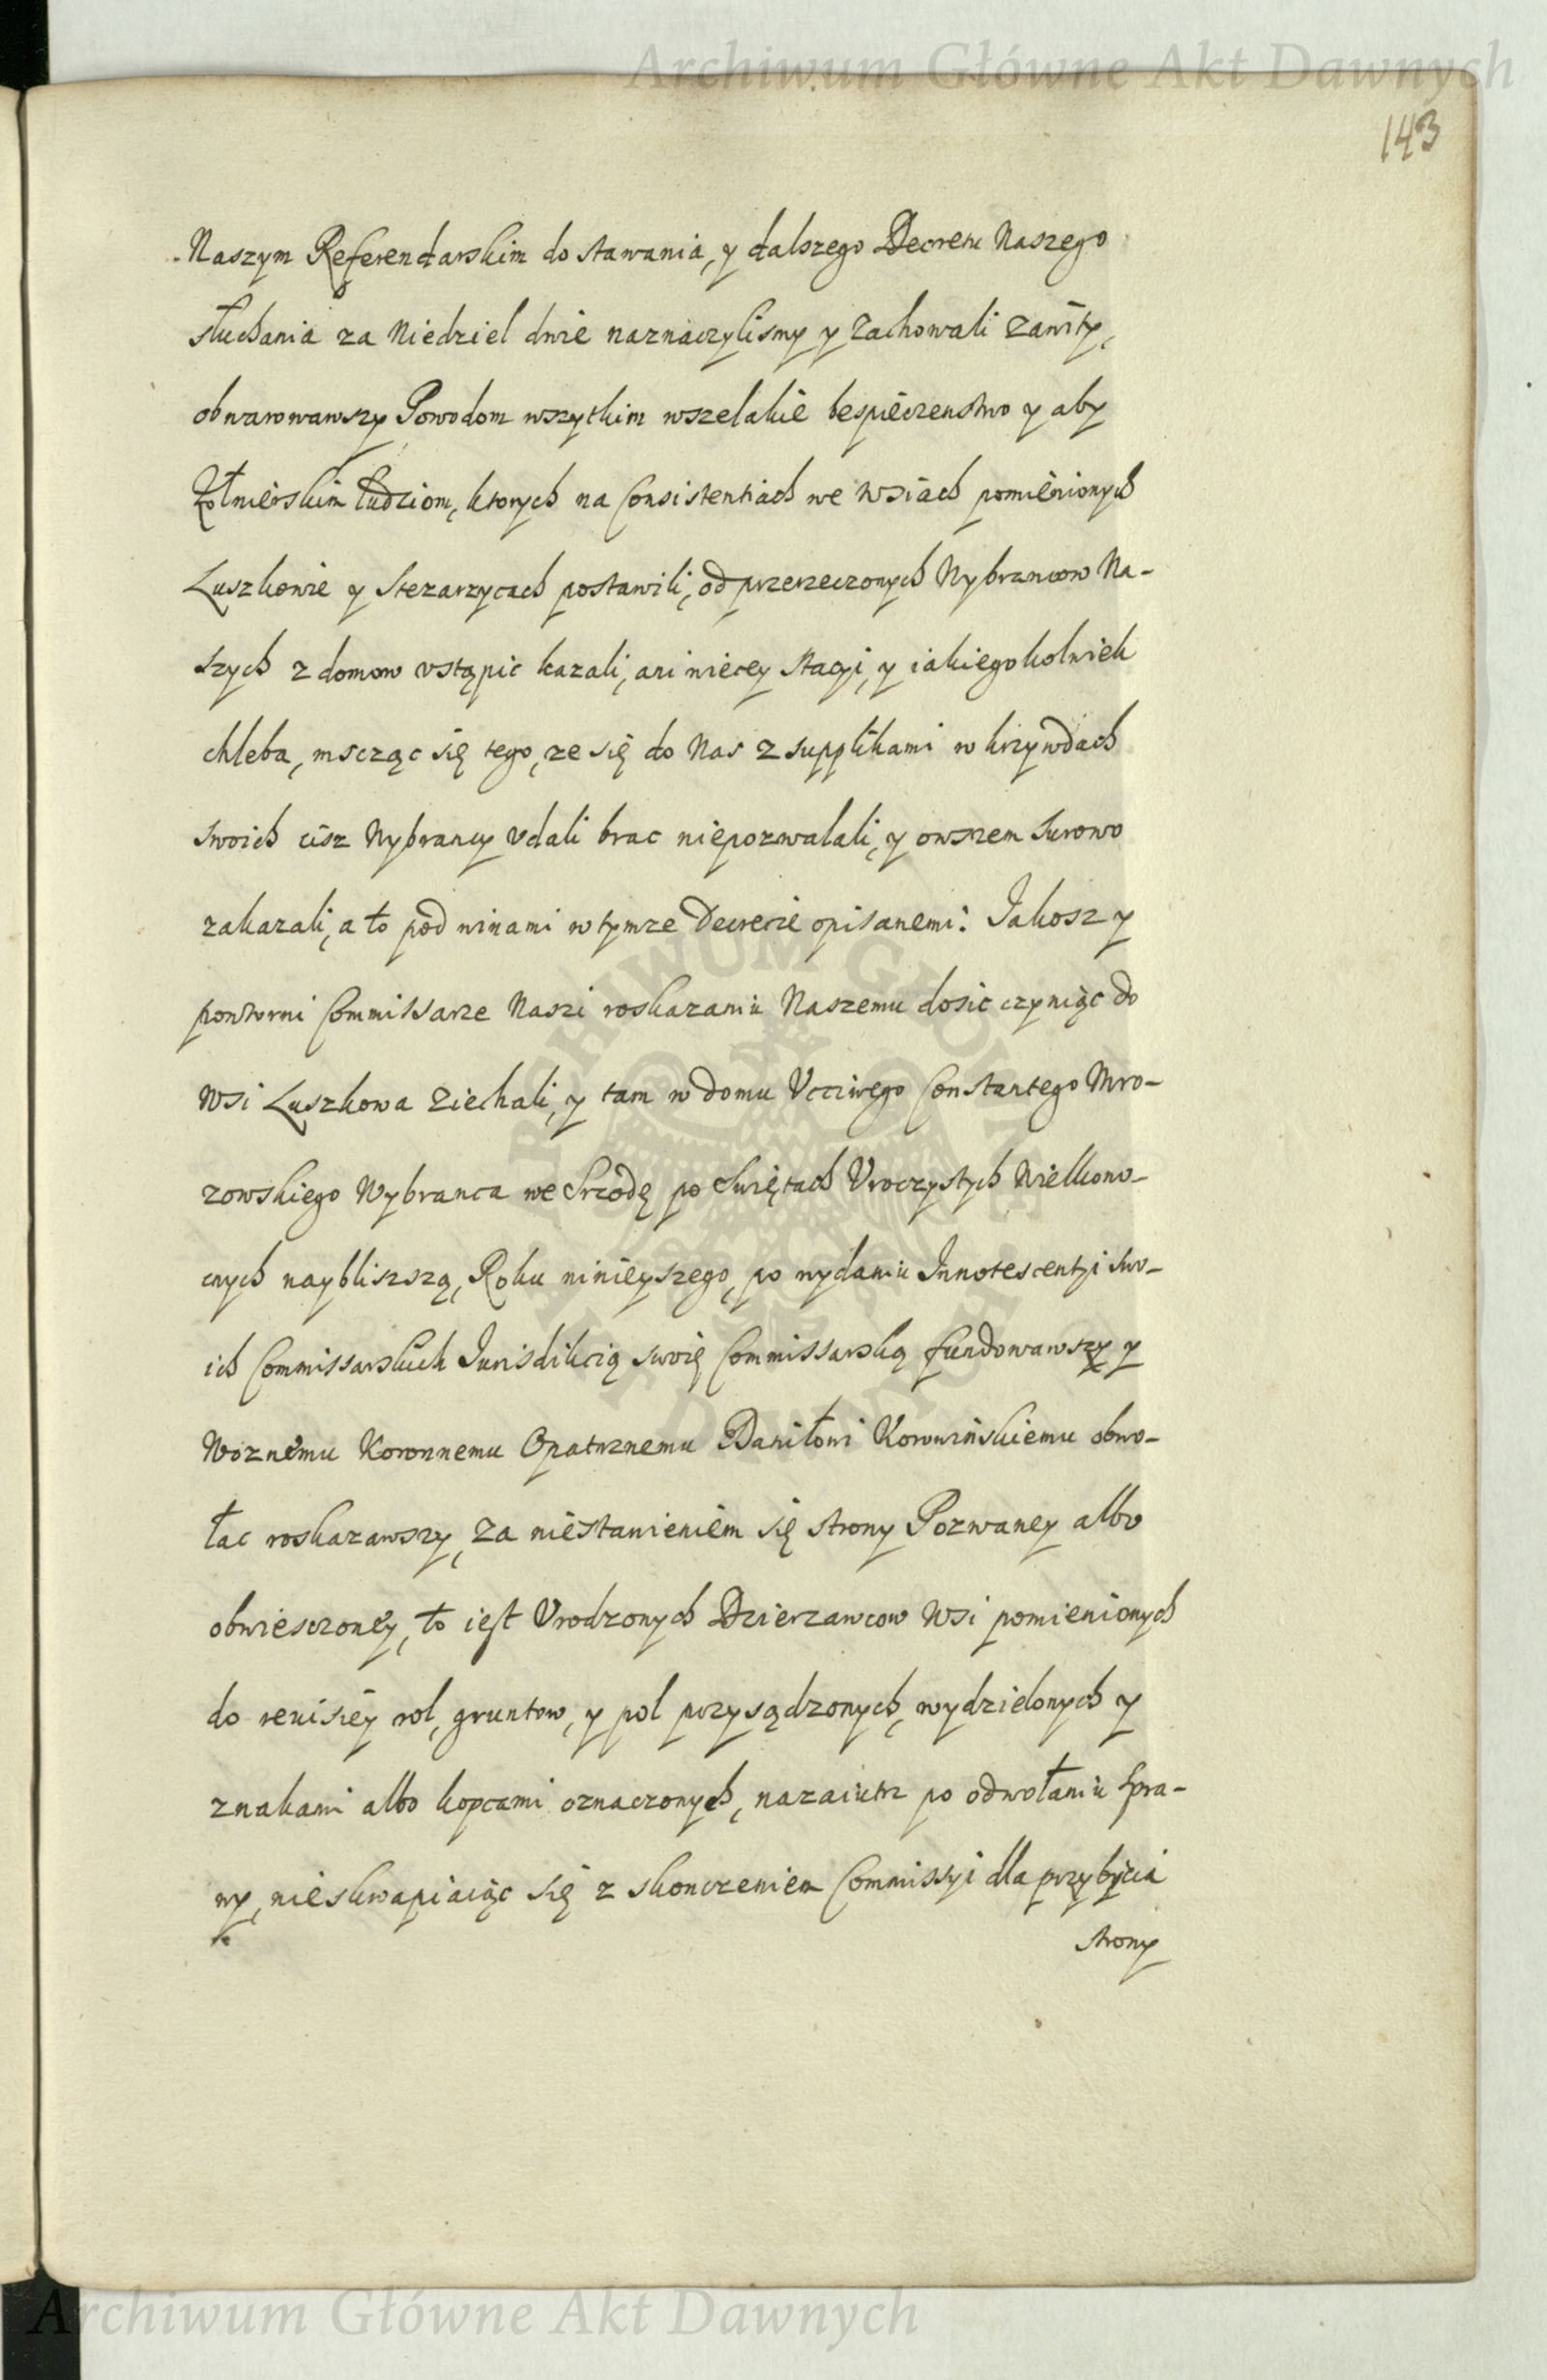 Archiwum Główne Akt Dawnych
143
Naszym Referendarskim do stawania, y dalszego Decretu Naszego
słuchania za Niedziel dwie naznaczylismy y zachowali zawity,
obwarowawszy Powodom wszytkim wszelakie bespieczenstwo y aby
Zołnierskim ludziom, ktorych na Consistentiach we wsiach pomienionych
Luszkowie y Stezarzycach postawili, od przerzeczonych Wybrancow Na-
szych z domow vstąpic kazali, ani wiecey Stacyi, y iakiegokolwiek
chleba, mscząc się tego, ze się do Nas z supplikami w krzywdach
swoich cisz Wybrancy vdali brac niepozwalali, y owszem surowo
zakazali, a to pod winami w tymze Decrecie opisanemi: Jakosz y
powtorni Commissarze Naszi roskazaniu Naszemu dosic czyniąc do
Wsi Luszkowa ziechali, y tam w domu Vcciwego Constantego Mro-
zowskiego Wybranca we Srzodę po Swiętach Vroczystych Wielkono-
cnych naybliszszą, Roku ninieyszego, po wydaniu Innotescentyi swo-
ich Commissarskich Jurisdikcią swoię Commissarską fundowawszy y
Woznemu Koronnemu Opatrznemu Daniłowi Korwinskiemu obwo-
łac roskazawszy, za niestanieniem się strony Pozwaney albo
obwiesczoney, to iest Vrodzonych Dzierzawcow Wsi pomienionych
do reuisiey rol, gruntow, y pol przysądzonych, wydzielonych y
znakami albo kopcami oznaczonych, nazaiutrz po odwołaniu spra-
wy, nieskwapiaiąc się z skonczeniem Commissyi dla przybycia
strony
Archiwum Główne Akt Dawnych